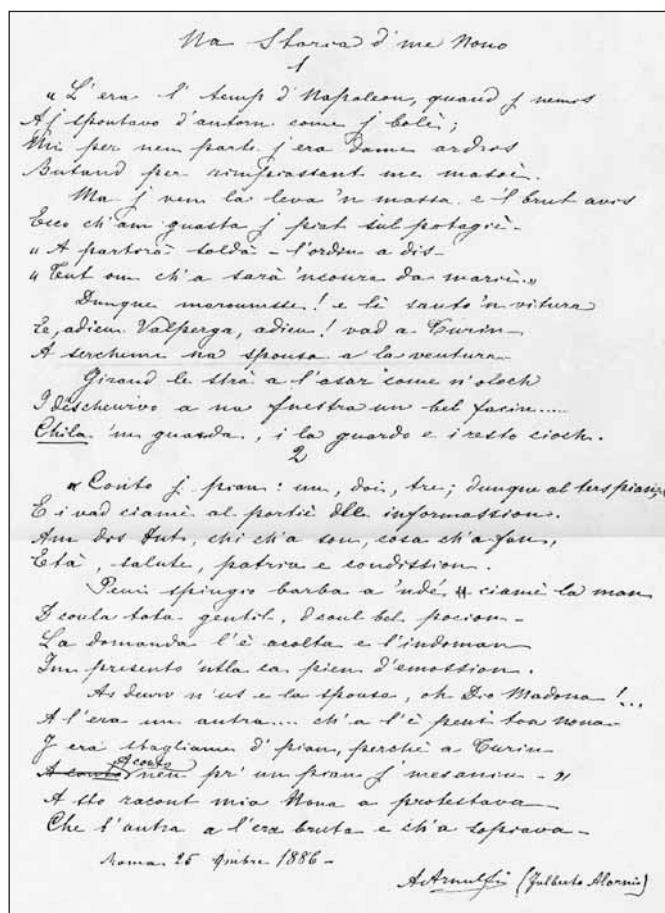 Na Storia d'me Nono
1
« L'era l' temp d'Napoleon, quand j nemis
A j spontavo d'antorn come j bolè;
Mi per nen parte j era dame ardros
Butand per rimpiassant me masoè.
Ma j ven la leva 'n massa e l brut avis
Ecco ch'am guasta j piat sul potagiè -
« A partirà soldà - l'ordin a dis -
« Tut om ch'a sarà 'ncoura da mariè »
Dunque maroumsse! e lè sauto 'n vitura
E, adieu Valperga, adieu! vad a Turin
A sercheme na spousa a la ventura
Girand le strà a l'asar come n'oloch
I descheurvo a na fnestra un bel facin.....
Chila 'm guarda, i la guardo e i resto cioch.
2
« Conto j pian: un, doi, tre; dunque al ters pian;
E i vad ciamè al portiè dle informassion.
Am dis tut, chi ch'a son, cosa ch'a fan,
Età, salute, patria e condission.
Peui spingio barba a 'ndè ciamè la man
D coula tota gentil, d coul bel pocion -
La domanda l'è acolta e l'indoman
Im presento 'ntla ca pien d'emossion.
As deurv n'us e la spousa, oh Dio Madona!...
A l'era un autra.... ch'a l'è peui toa nona -
J era sbagliame d' pian, perchè a Turin
A conto nen pr' un pian j mesanin - »
A sto racont mia Nona a protestava
Che l'autra a l'era bruta e ch'a sopiava -
Roma 25 9mbre 1886 -
A. Arnulfi (Fulberto Alarni)